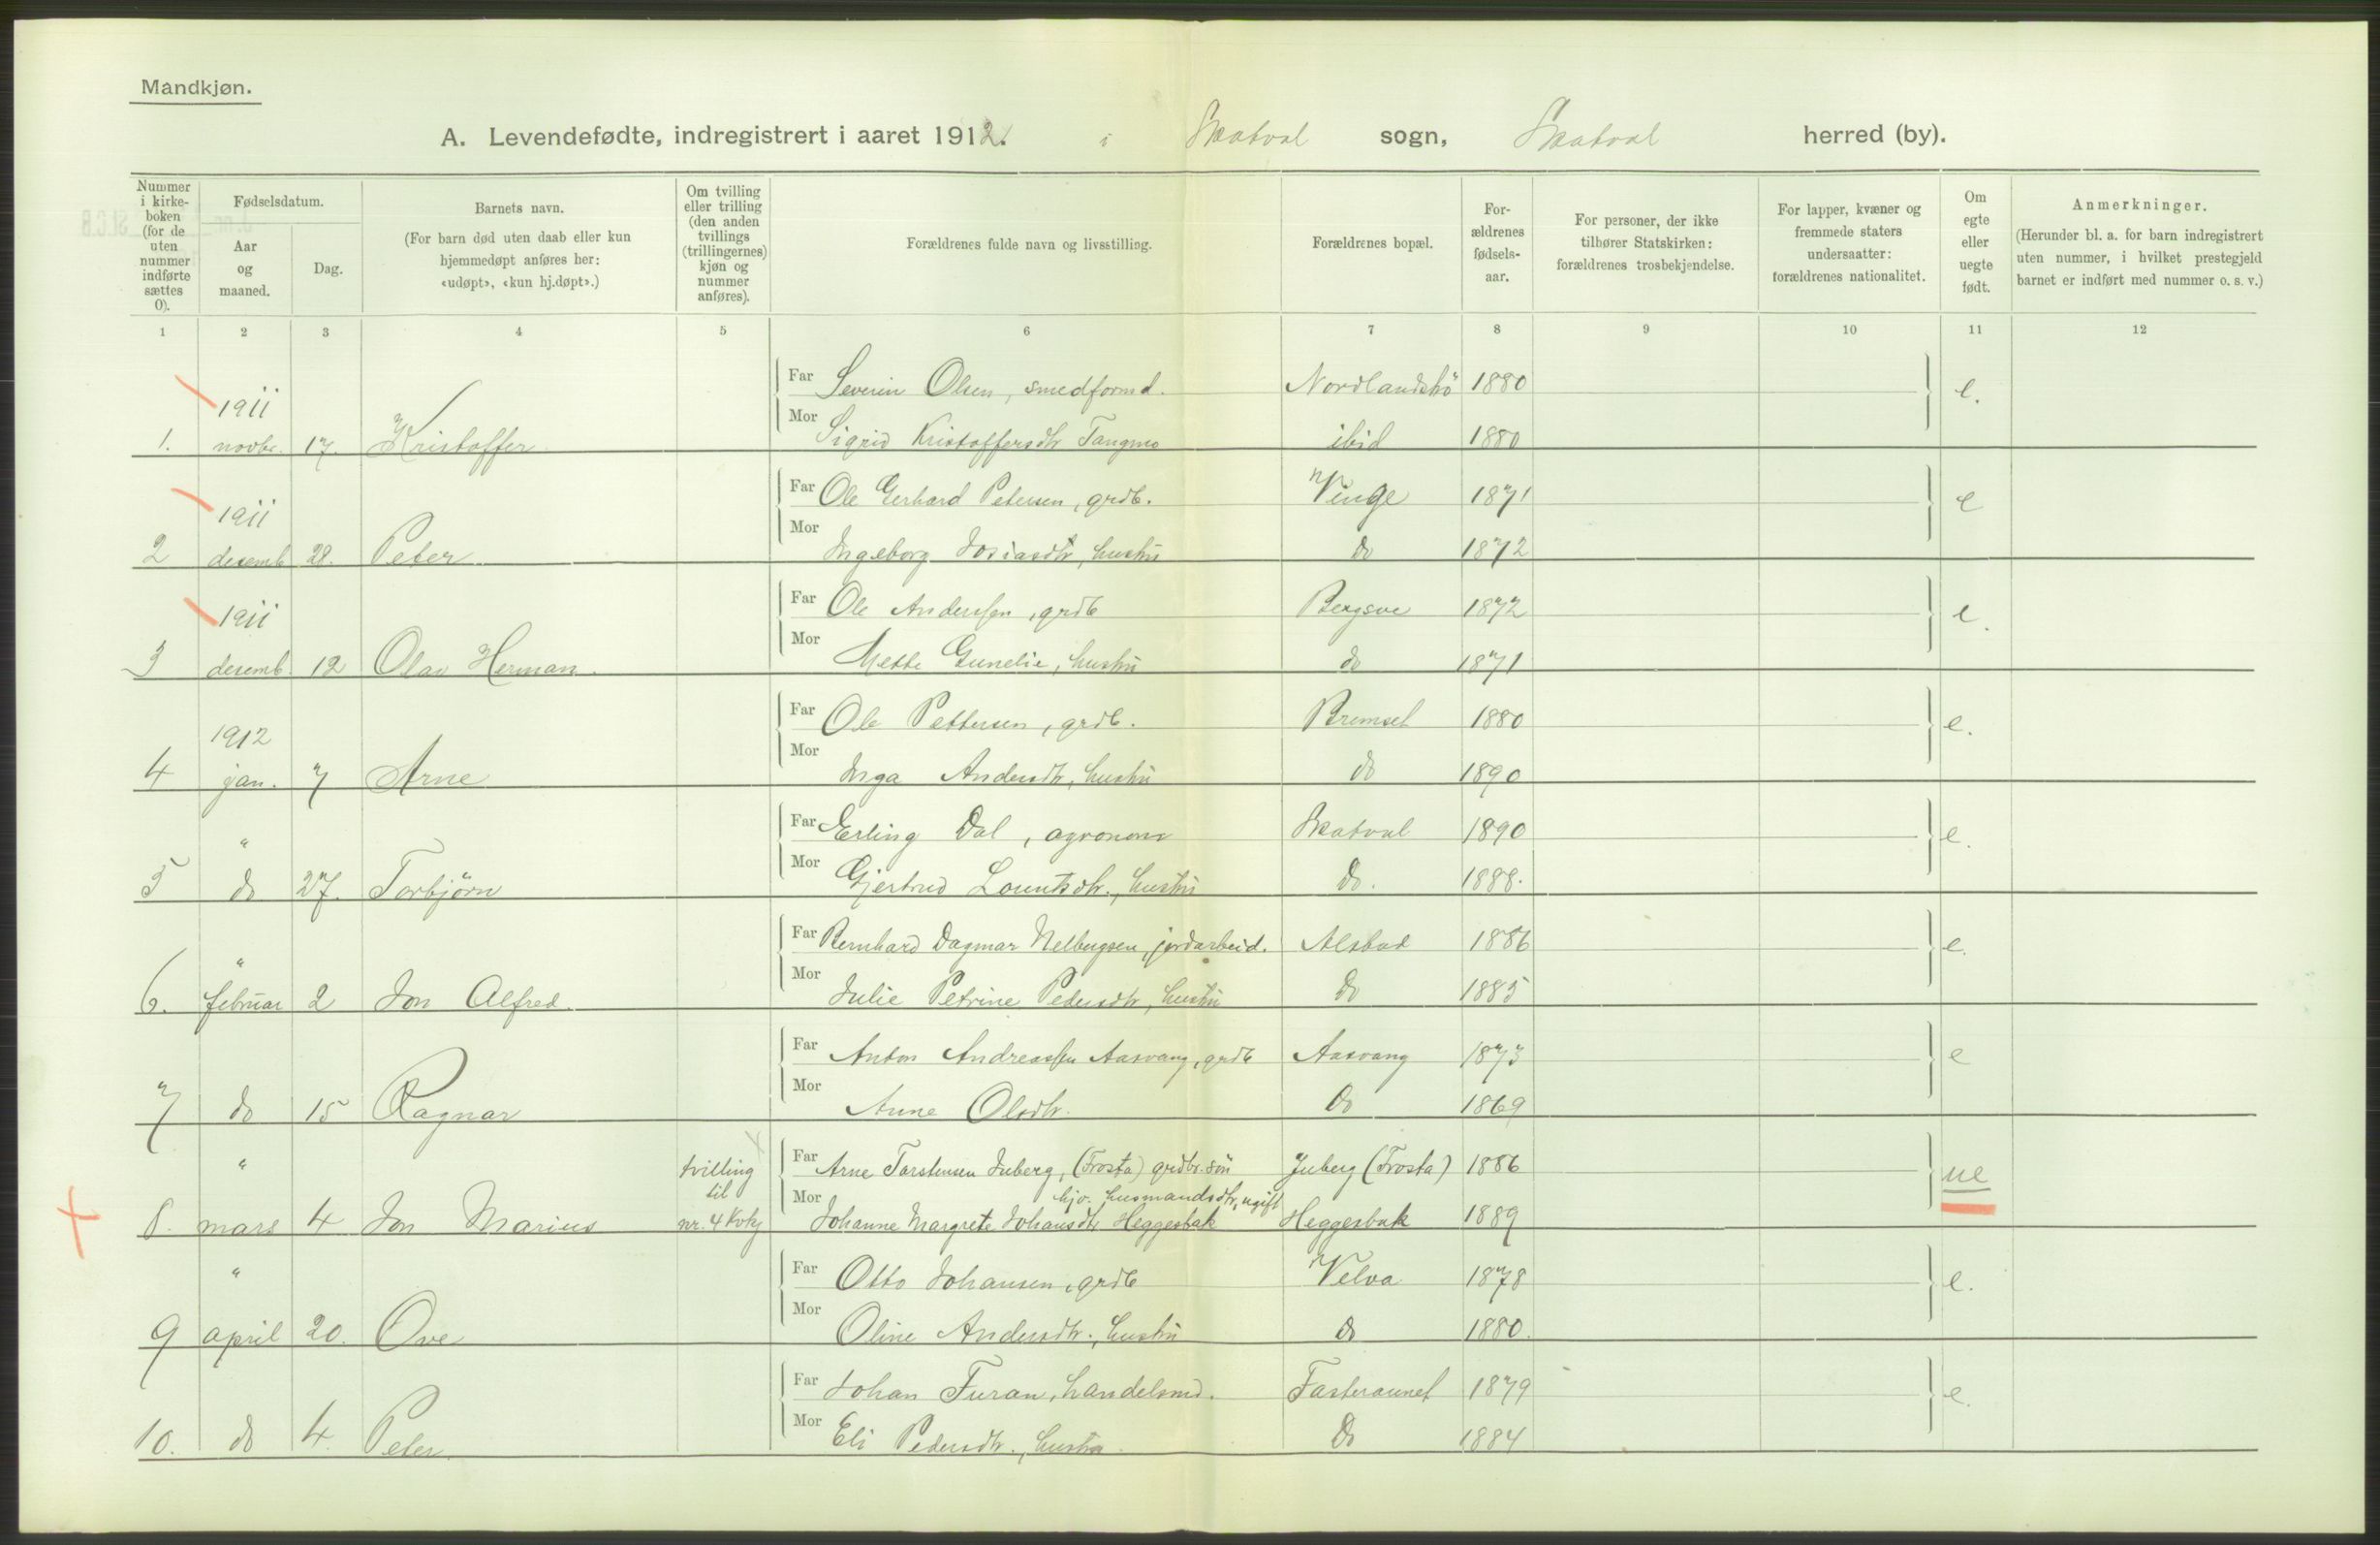 Mandkjøn.
A. Levendefødte, indregistrert i aaret 1912. i Skatval sogn, Skatval herred (by).
Nummer i kirke-boken (for de uten nummer indførte sættes 0).
Fødselsdatum.
Aar og maaned.
Dag.
Barnets navn.
(For barn død uten daab eller kun hjemmedøpt anføres her: «udøpt», «kun hj.døpt».)
Om tvilling eller trilling (den anden tvillings (trillingernes) kjøn og nummer anføres).
Forældrenes fulde navn og livsstilling.
Forældrenes bopæl.
For-ældrenes fødsels-aar.
For personer, der ikke tilhører Statskirken: forældrenes trosbekjendelse.
For lapper, kvæner og fremmede staters undersaatter: forældrenes nationalitet.
Om egte eller uegte født.
Anmerkninger.
(Herunder bl. a. for barn indregistrert uten nummer, i hvilket prestegjeld barnet er indført med nummer o. s. v.)
1 2 3 4 5 6 7 8 9 10 11 12
1911 Far Severin Olsen, smedformd. Nordlandshö 1880 e.
1. novbr. 17. Kristoffer Mor Sigrid Kristoffersdtr Tangmo ibid 1880
1911 Far Ole Gerhard Petersen, grdb. Vinge 1871 e
2 desemb 28. Peter Mor Ingeborg Josiasdtr, hustru do 1872
1911 Far Ole Anderssen, grdb Bergsve 1872 e.
3 desemb. 12 Olav Herman Mor Mette Gunelie, hustru do 1871
1912 Far Ole Pettersen, grdb. Bremset 1880 e.
4 jan. 7 Arne Mor Inga Andersdtr, hustru do 1890
" Far Erling Dal, agronom Skatval 1890 e.
5 do 27. Torbjörn Mor Gjertrud Lorntsdtr., hustru do. 1888.
" Far Bernhard Dagmar Nelbugsen, jordarbeid. Alstad 1886 e.
6. februar 2 Jon Alfred Mor Julie Petrine Pedersdtr, hustru do 1885
Far Anton Andreassen Aasvang, grdb Aasvang 1873 e
7 do 15 Ragnar Mor Anne Olsdtr. do 1869
" tvilling Far Arne Torstensen Juberg, (Frosta) grdbr. sön Juberg (Frosta) 1886 ue
til hjv. husmandsdtr, ugift
8. mars 4 Jon Marius nr. 4 Kvkj Mor Johanne Margrete Johansdtr Heggesbak Heggesbak 1889
" Far Otto Johansen, grdb Velva 1878 e.
9 april 20. Ove Mor Oline Andersdtr., hustru do 1880.
Far Johan Furan, handelsmd. Fasteraunet 1879 e.
10. do 4. Peter Mor Eli Pedersdtr., hustru do 1884